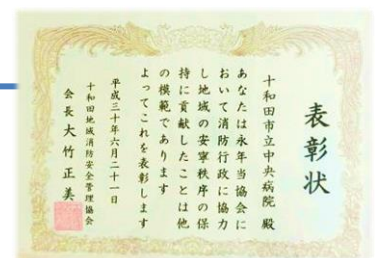 表彰状
十和田市立中央病院 殿
あなたは永年当協会に
おいて消防行政に協力
し地域の安寧秩序の保
持に貢献したことは他
の模範であります
よってこれを表彰します
平成三十年六月二十一日
十和田地域消防安全管理協会
会長 大竹正美